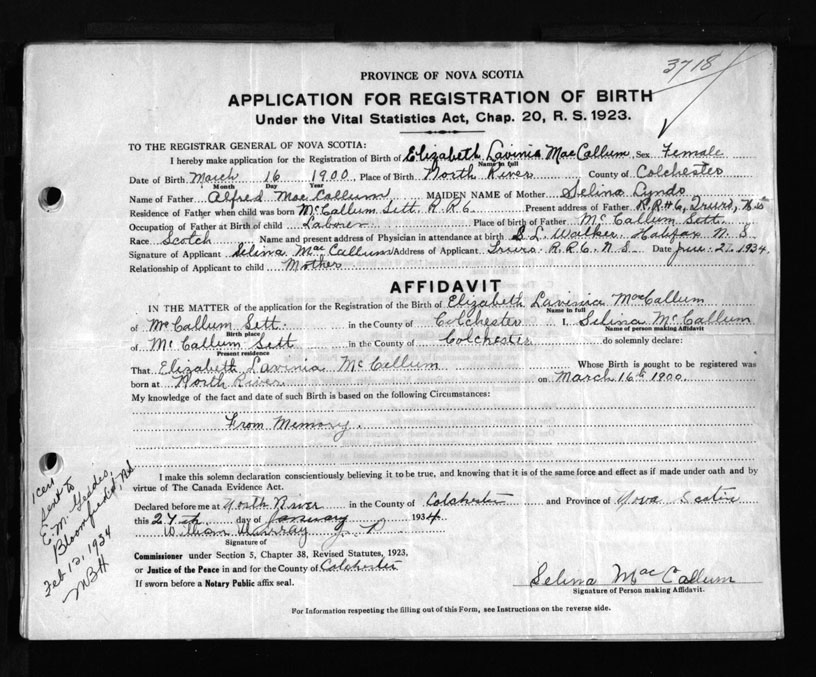 3718
PROVINCE OF NOVA SCOTIA
APPLICATION FOR REGISTRATION OF BIRTH
Under the Vital Statistics Act, Chap. 20, R. S. 1923.
TO THE REGISTRAR GENERAL OF NOVA SCOTIA:
I hereby make application for the Registration of Birth of Elizabeth Lavinia MacCallum Sex Female
Name in full
Date of Birth March 16 1900 Place of Birth North River County of Colchester
Month Day Year
Name of Father Alfred MacCallum MAIDEN NAME of Mother Selina Lynds
Residence of Father when child was born McCallum Sett. R R 6 Present address of Father R.R#6, Truro, N.S.
Occupation of Father at Birth of child Laborer Place of birth of Father McCallum Sett.
Race Scotch Name and present address of Physician in attendance at birth S. L. Walker, Halifax N. S.
Signature of Applicant Selina MacCallum Address of Applicant Truro R.R.6. N.S. Date 27 1934
Relationship of Applicant to child Mother
AFFIDAVIT
IN THE MATTER of the application for the Registration of the Birth of Elizabeth Lavinia MacCallum
Name in full
of McCallum Sett. in the County of Colchester I, Selina McCallum
Birth place Name of person making Affidavit
of McCallum Sett in the County of Colchester do solemnly declare:
Present residence
That Elizabeth Lavinia McCallum Whose Birth is sought to be registered was
born at North River on March 16th 1900
My knowledge of the fact and date of such Birth is based on the following Circumstances:
From Memory.
I make this solemn declaration conscientiously believing it to be true, and knowing that it is of the same force and effect as if made under oath and by
virtue of The Canada Evidence Act.
Declared before me at North River in the County of Colchester and Province of Nova Scotia
this 27th day of January 1934
William Murray J. P.
Signature of
Commissioner under Section 5, Chapter 38, Revised Statutes, 1923,
or Justice of the Peace in and for the County of Colchester
If sworn before a Notary Public affix seal.
Selina MacCallum
Signature of Person making Affidavit.
For Information respecting the filling out of this Form, see Instructions on the reverse side.
1 cert
sent to
E. M. Geddes,
Bloomfield, Rd
Feb 12, 1934
MBH